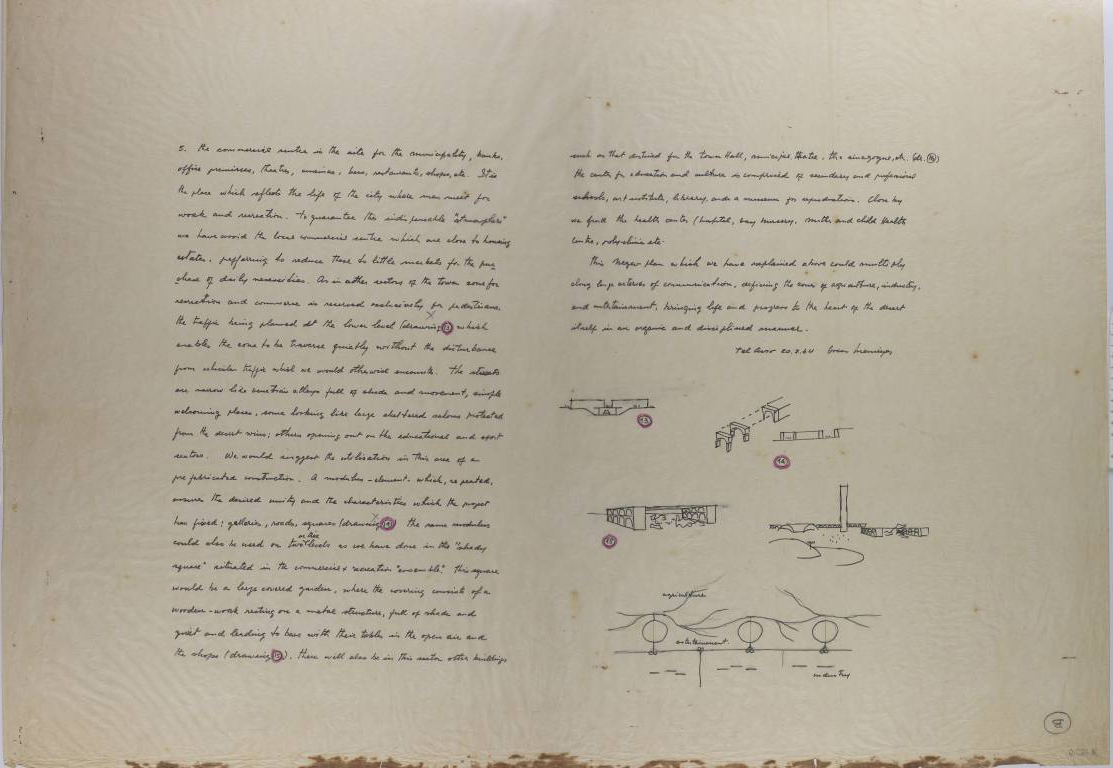 5. the commercial centre is the site for the municipality, banks,
office premises, theatres, cinemas, bars, restaurants, shops, etc. It is
the place which reflects the life of the city where men meet for
work and recreation. To guarantee this indispensable "atmosphere"
we have avoid the local commercial centre which are close to housing
estates, preferring to reduce these to little markets for the pur
chase of daily necessities. As in other sectors of the town zone for
recreation and commerce is reserved exclusively for pedestrians,
the traffic being planned at the lower level (drawing 13) which
enables the zone to be traverse quietly without the disturbance
from vehicular traffic which we would otherwise encounter. The streets
are narrow like venetian alleys full of shade and movement, simple
welcoming places, some looking like large sheltered salons protected
from the desert wins; others opening out on the educational and sport
sectors. We would suggest the utilisation in this area of a
prefabricated construction. A modulus-element which, repeated,
ensures the desired unity and the characteristics which the project
has fixed; galleries, roads, squares (drawing 14) the same modulus
could also be used on two or three levels as we have done in the "shady
square" situated in the commercial + recreation "ensemble". This square
would be a large covered garden, where the covering consists of a
wooden-work resting on a metal structure, full of shade and
quiet and leading to bars with their tables in the open air and
the shops (drawing 15). There will also be in this sector other buildings
such as that destined for the town Hall, municipal theatre, the sinagogue, etc. Etc. (16)
the center for education and culture is comprised of secondary and profesional
schools, art institute, library, and a museum for reproductions. Close by
we find the health center (hospital, day nursery, mother and child Health
Centre, polyclinic etc.
This Negev plan which we have explained above could multiply
along large arteries of communication, defining the zones of agriculture, industry,
and entertainment, bringing life and progress to the heart of the desert
itself in an organic and disciplined manner.
Tel Aviv 20.5.64 Oscar Niemeyer
13
14
15
agriculture
entertainment
industry
8